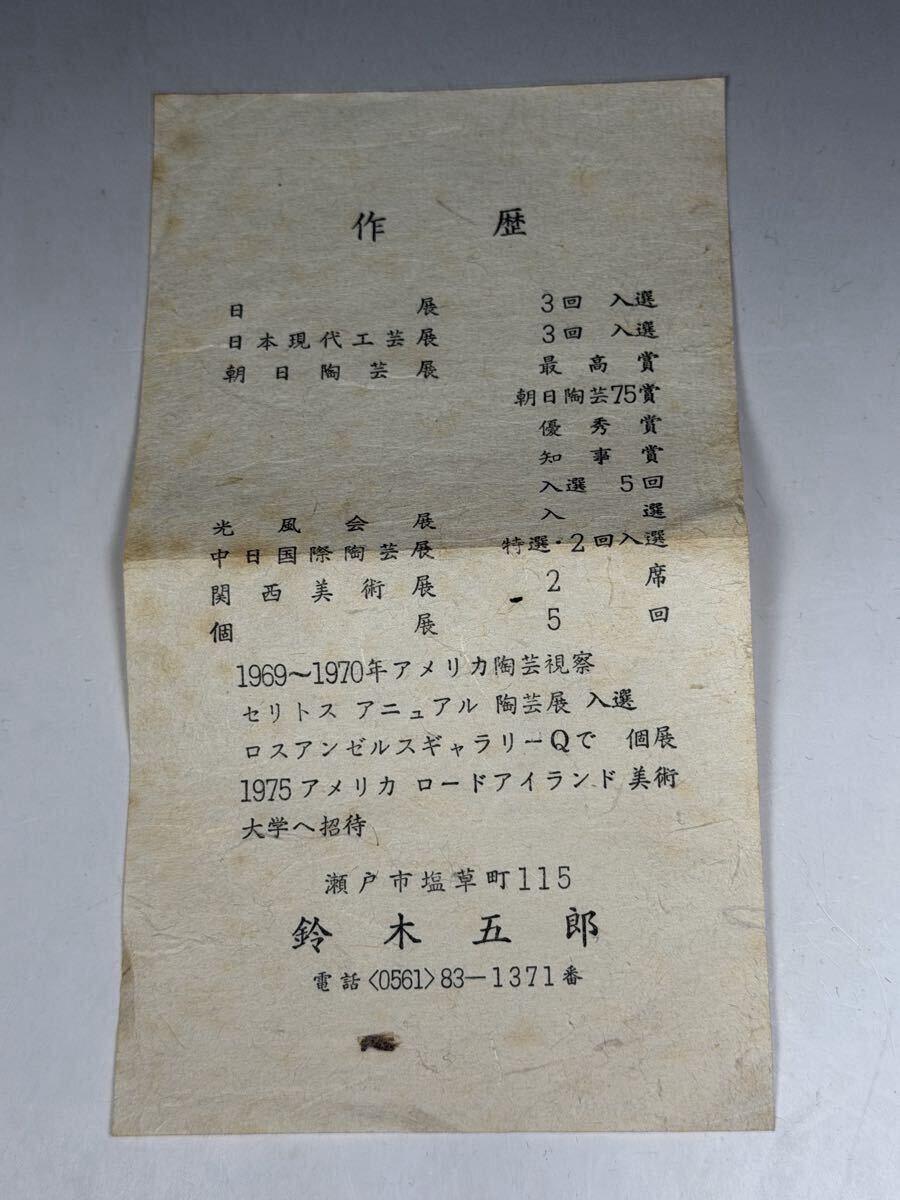 作歴
日展 3回 入選
日本現代工芸展 3回 入選
朝日陶芸展 最高賞
朝日陶芸75賞
優秀賞
知事賞
入選 5回
光風会展 入選
中日国際陶芸展 特選・2回入選
関西美術展 2席
個展 5回
1969〜1970年アメリカ陶芸視察
セリトス アニュアル 陶芸展 入選
ロスアンゼルスギャラリーQで 個展
1975アメリカ ロードアイランド 美術
大学へ招待
瀬戸市塩草町115
鈴木五郎
電話〈0561〉83―1371番